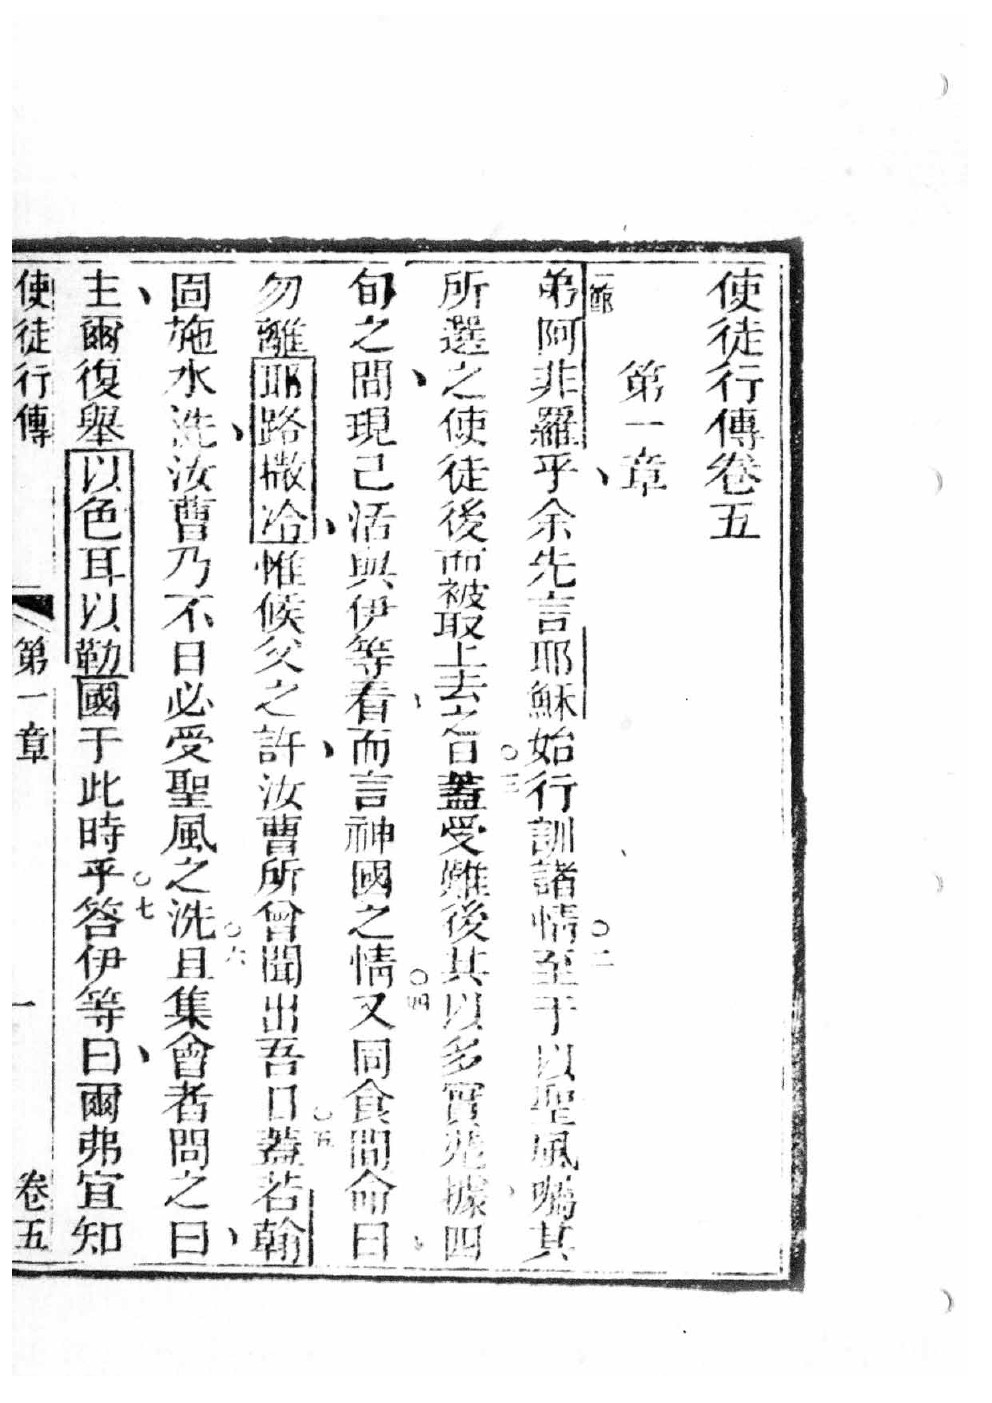 使徒行傳卷五
第一章
一節
弟阿非羅乎余先言耶穌始行訓諸情至于以聖風囑其
○二
所選之使徒後而被取上去之日蓋受難後其以多實兆據四
○三
旬之間現己活與伊等看而言神國之情又同食間命曰
○四
勿離耶路撒冷惟候父之許汝曹所曾聞出吾口蓋若翰
○五
固施水洗汝曹乃不日必受聖風之洗且集會者問之曰
○六
主爾復舉以色耳以勒國于此時乎答伊等曰爾弗宜知
○七
使徒行傳 第一章 一 卷五